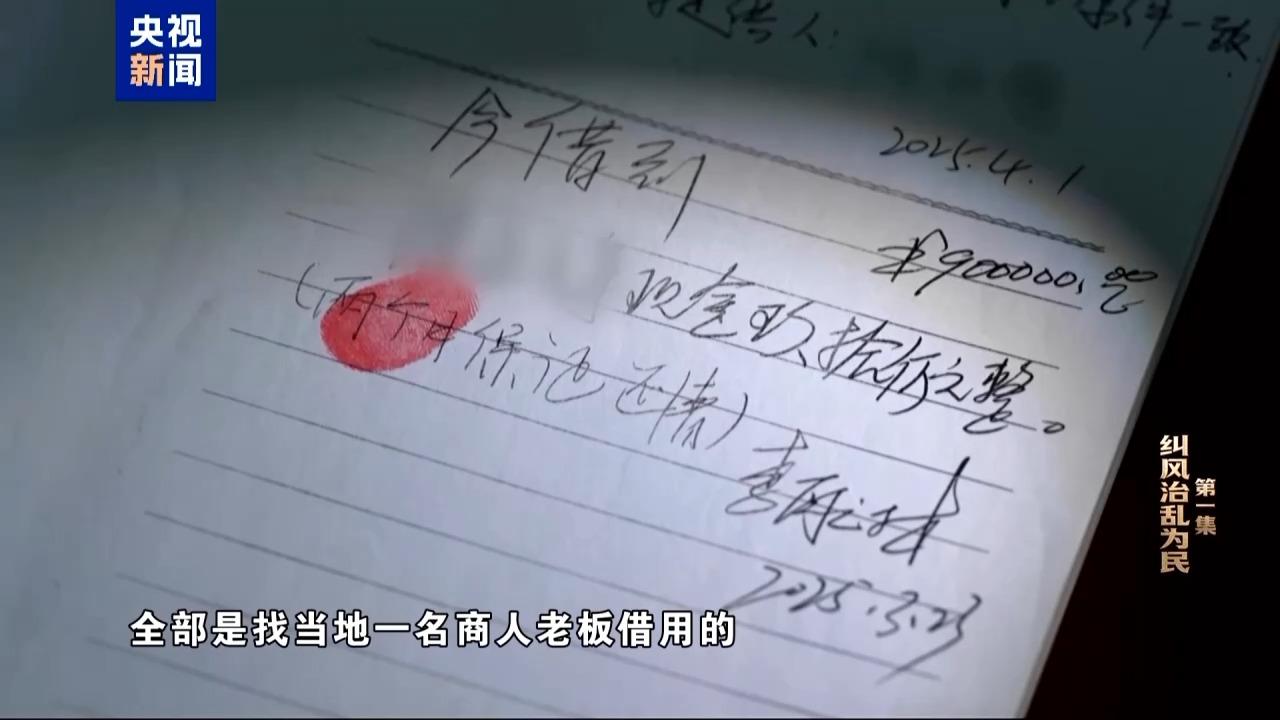 央视
新闻
提供人:
2025.4.1
今借到
¥900000.00
现金玖拾万元整。
(两个月保证还清)
2025.3.23
第一集
纠风治乱为民
全部是找当地一名商人老板借用的